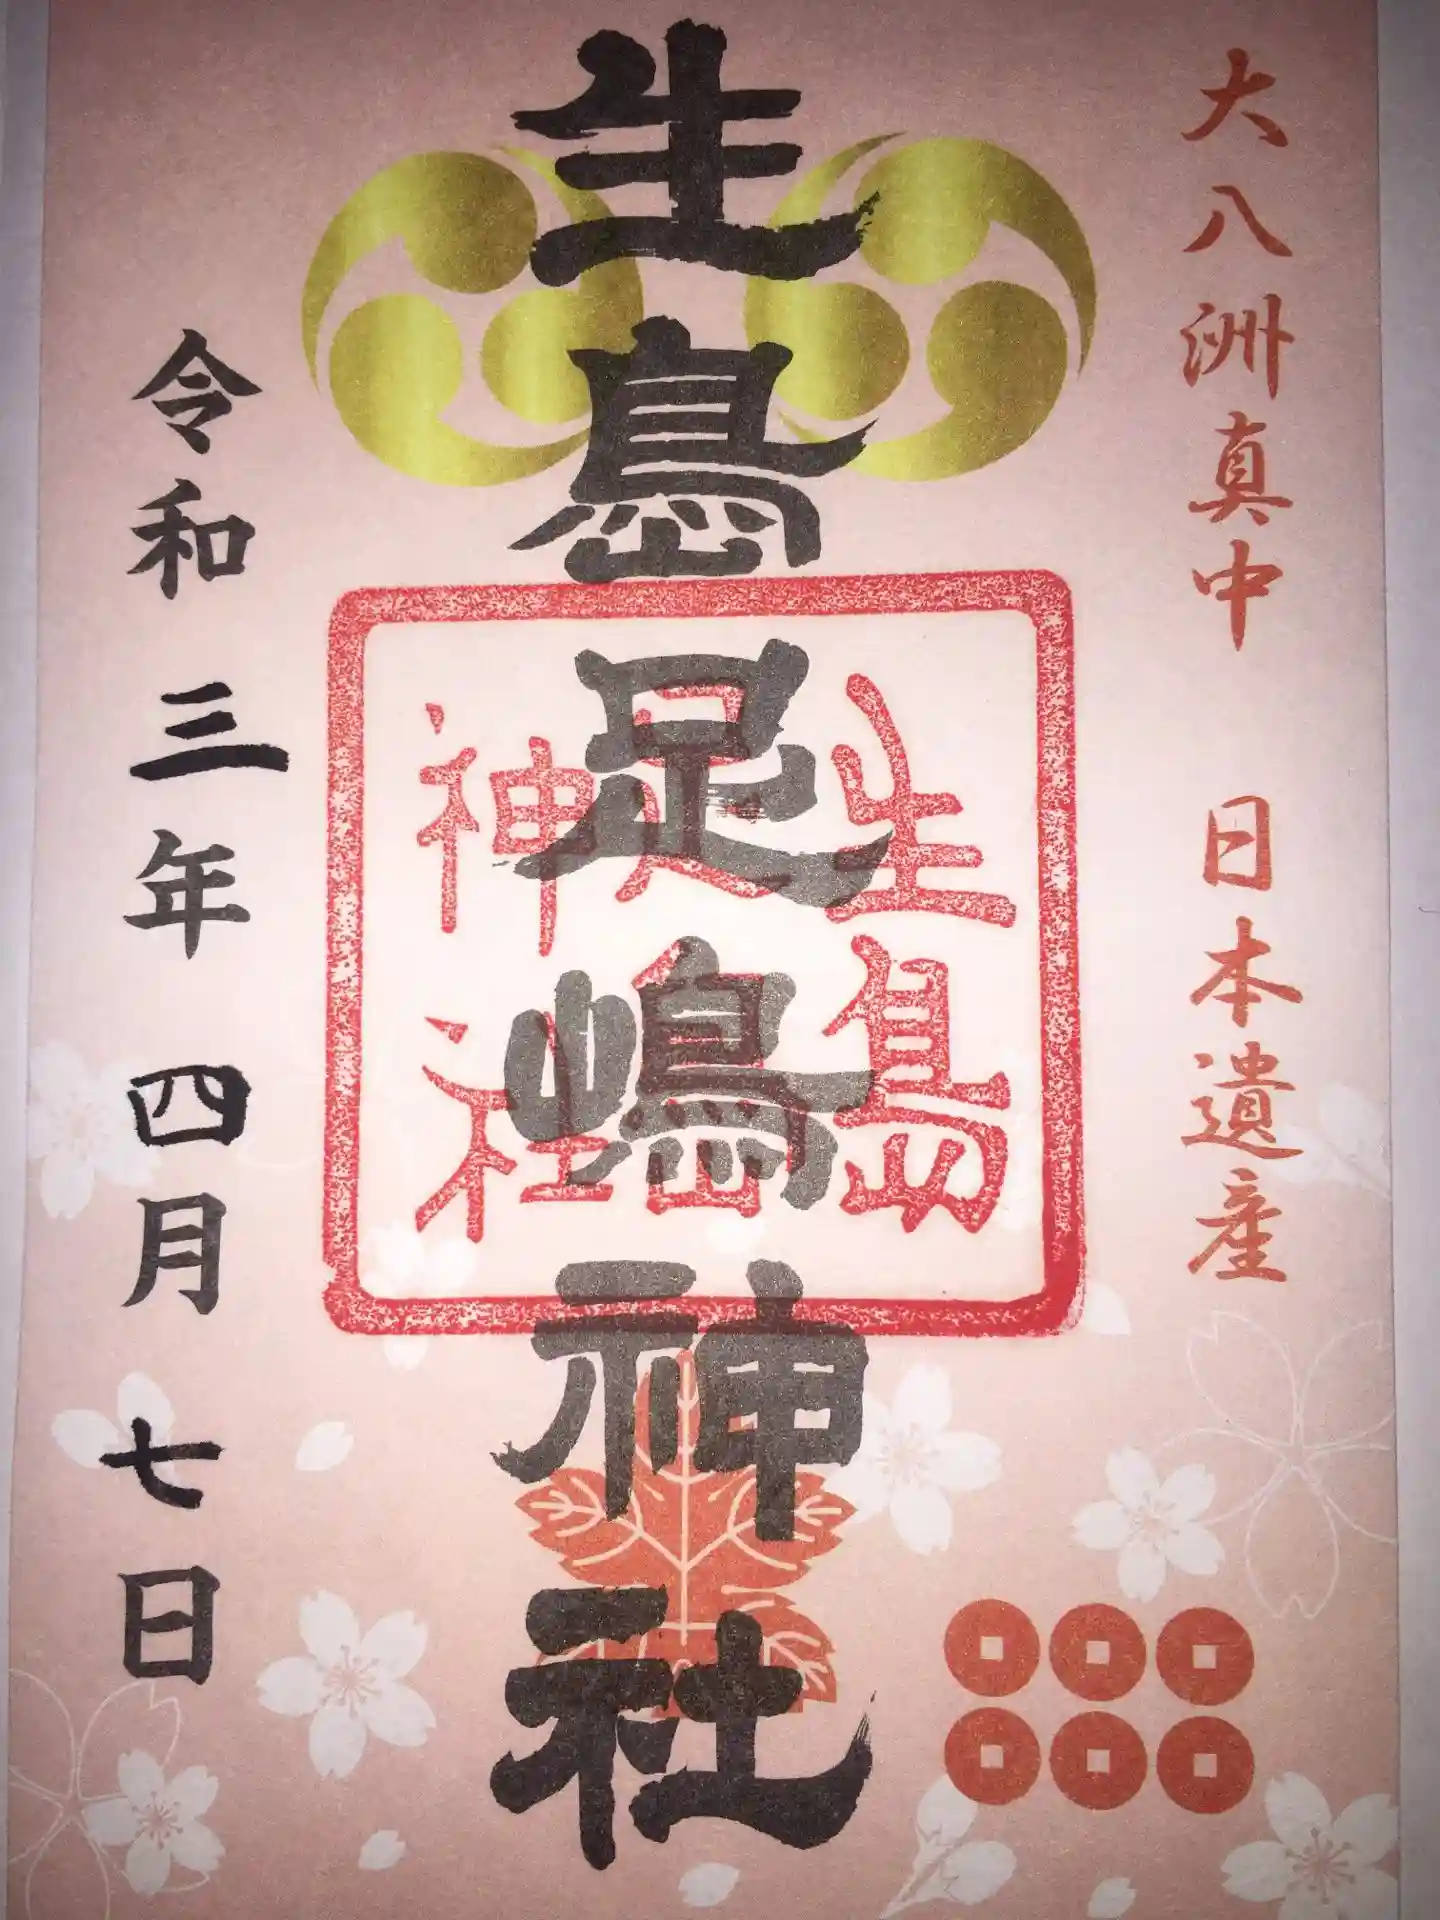 大八洲真中 日本遺産
生島足嶋神社
生島
足島
神社
令和三年四月七日